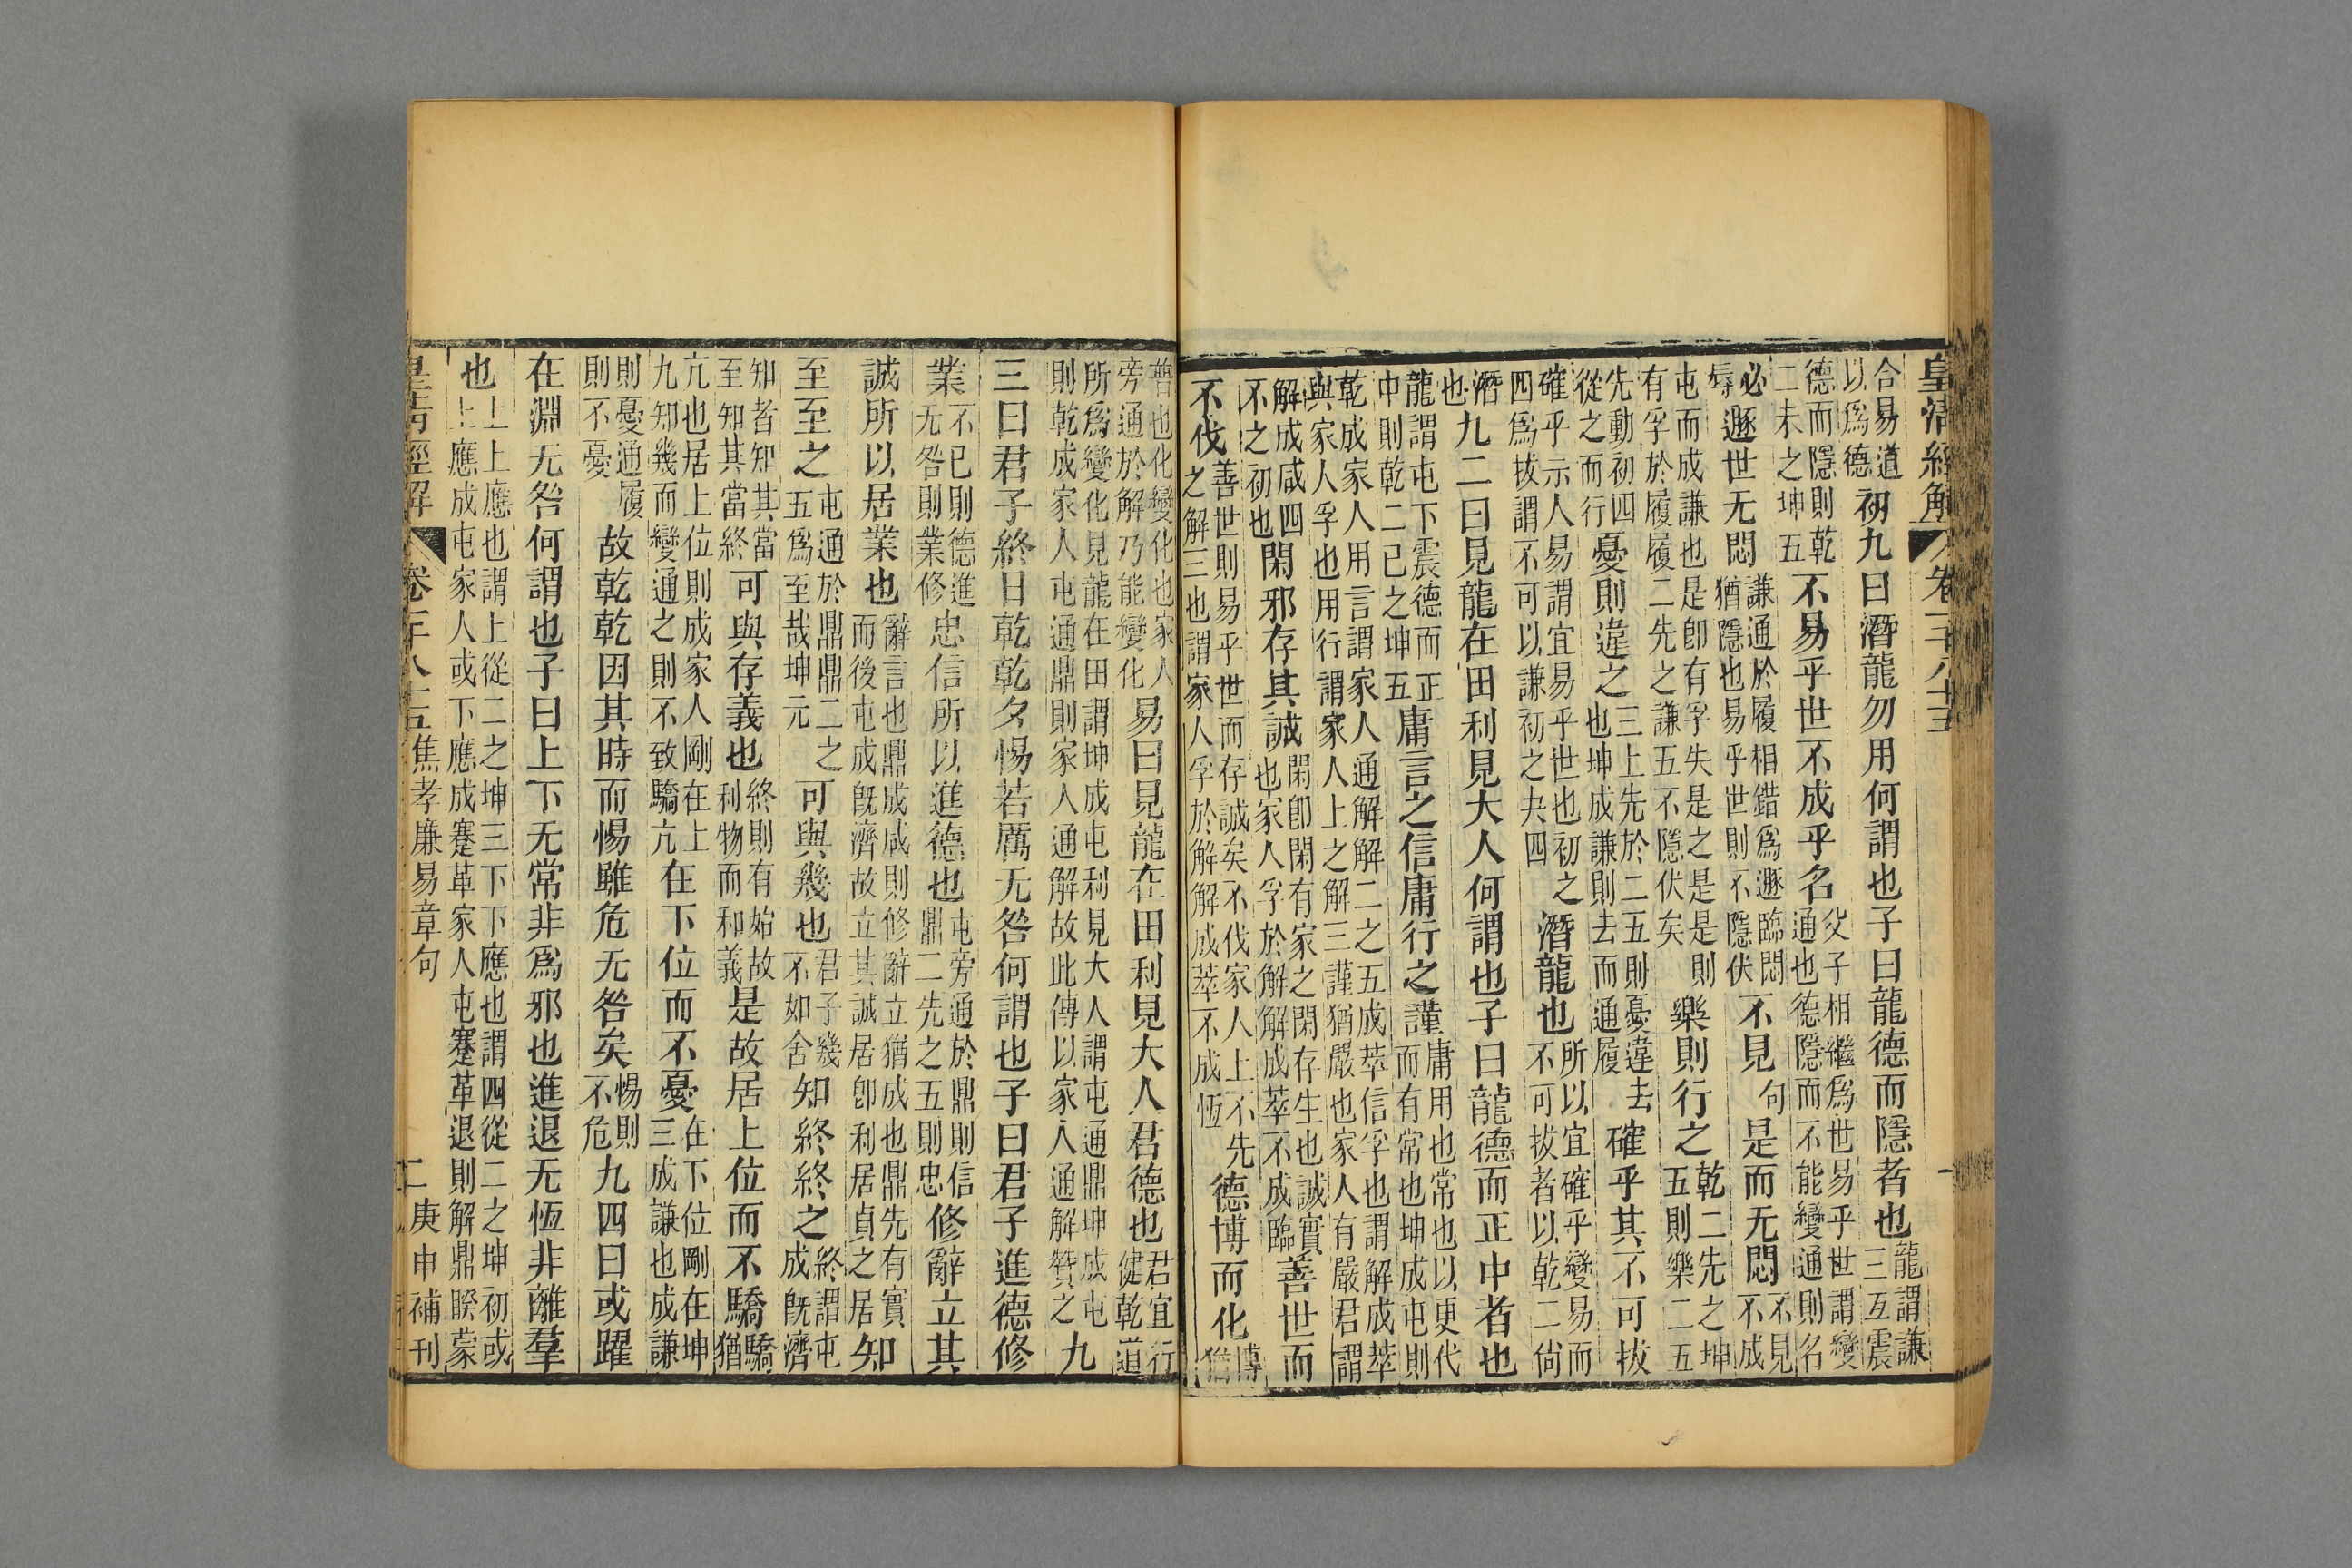 皇清經解
合易道以爲德初九曰潛龍勿用何謂也子曰龍德而隱者也龍謂謙三互震
德而隱則乾二未之坤五不易乎世不成乎名父子相繼爲世易乎世謂變通也德隱而不能變通則名
必辱遯世无悶謙通於履相錯爲遯臨悶猶隱也易乎世則不隱伏不見句是而无悶不見不成
屯而成謙也是卽有孚失是之是是則有孚於履履二先之謙五不隱伏矣樂則行之乾二先之坤五則樂二五
先動初四從之而行憂則違之三上先於二五則憂違去也坤成謙則去而通履確乎其不可拔
確乎示人易謂宜易乎世也初之四爲拔謂不可以謙初之夬四潛龍也所以宜確乎變易而不可拔者以乾二尙
潛也九二曰見龍在田利見大人何謂也子曰龍德而正中者也
龍謂屯下震德而正中則乾二已之坤五庸言之信庸行之謹庸用也常也以更代而有常也坤成屯則
乾成家人用言謂家人通解解二之五成萃信孚也謂解成萃與家人孚也用行謂家人上之解三謹猶嚴也家人有嚴君謂
解成咸四不之初也閑邪存其誠閑卽閑有家之閑存生也誠實也家人孚於解解成萃不成臨善世而
不伐善世則易乎世而存誠矣不伐家人上不先之解三也謂家人孚於解解成萃不成恆德博而化博猶
普也化變化也家人旁通於解乃能變化易曰見龍在田利見大人君德也君宜行健乾道
所爲變化見龍在田謂坤成屯利見大人謂屯通鼎坤成屯則乾成家人屯通鼎則家人通解故此傳以家人通解贊之九
三曰君子終日乾乾夕惕若厲无咎何謂也子曰君子進德修
業不已則德進无咎則業修忠信所以進德也屯旁通於鼎則信鼎二先之五則忠修辭立其
誠所以居業也辭言也鼎成咸則修辭立猶成也鼎先有實而後屯成旣濟故立其誠居卽利居貞之居知
至至之屯通於鼎鼎二之五爲至哉坤元可與幾也君子幾不如舍知終終之終謂屯成旣濟
知者知其當至知其當終可與存義也終則有始故利物而和義是故居上位而不驕驕猶
亢也居上位則成家人剛在上九知幾而變通之則不致驕亢在下位而不憂在下位剛在坤三成謙也成謙
則憂通履則不憂故乾乾因其時而惕雖危无咎矣惕則不危九四曰或躍
在淵无咎何謂也子曰上下无常非爲邪也進退无恆非離羣
也上上應也謂上從二之坤三下下應也謂四從二之坤初或上應成屯家人或下應成蹇革家人屯蹇革退則解鼎睽蒙
皇清經解 卷千八十五 焦孝廉易章句 二 庚申補刊